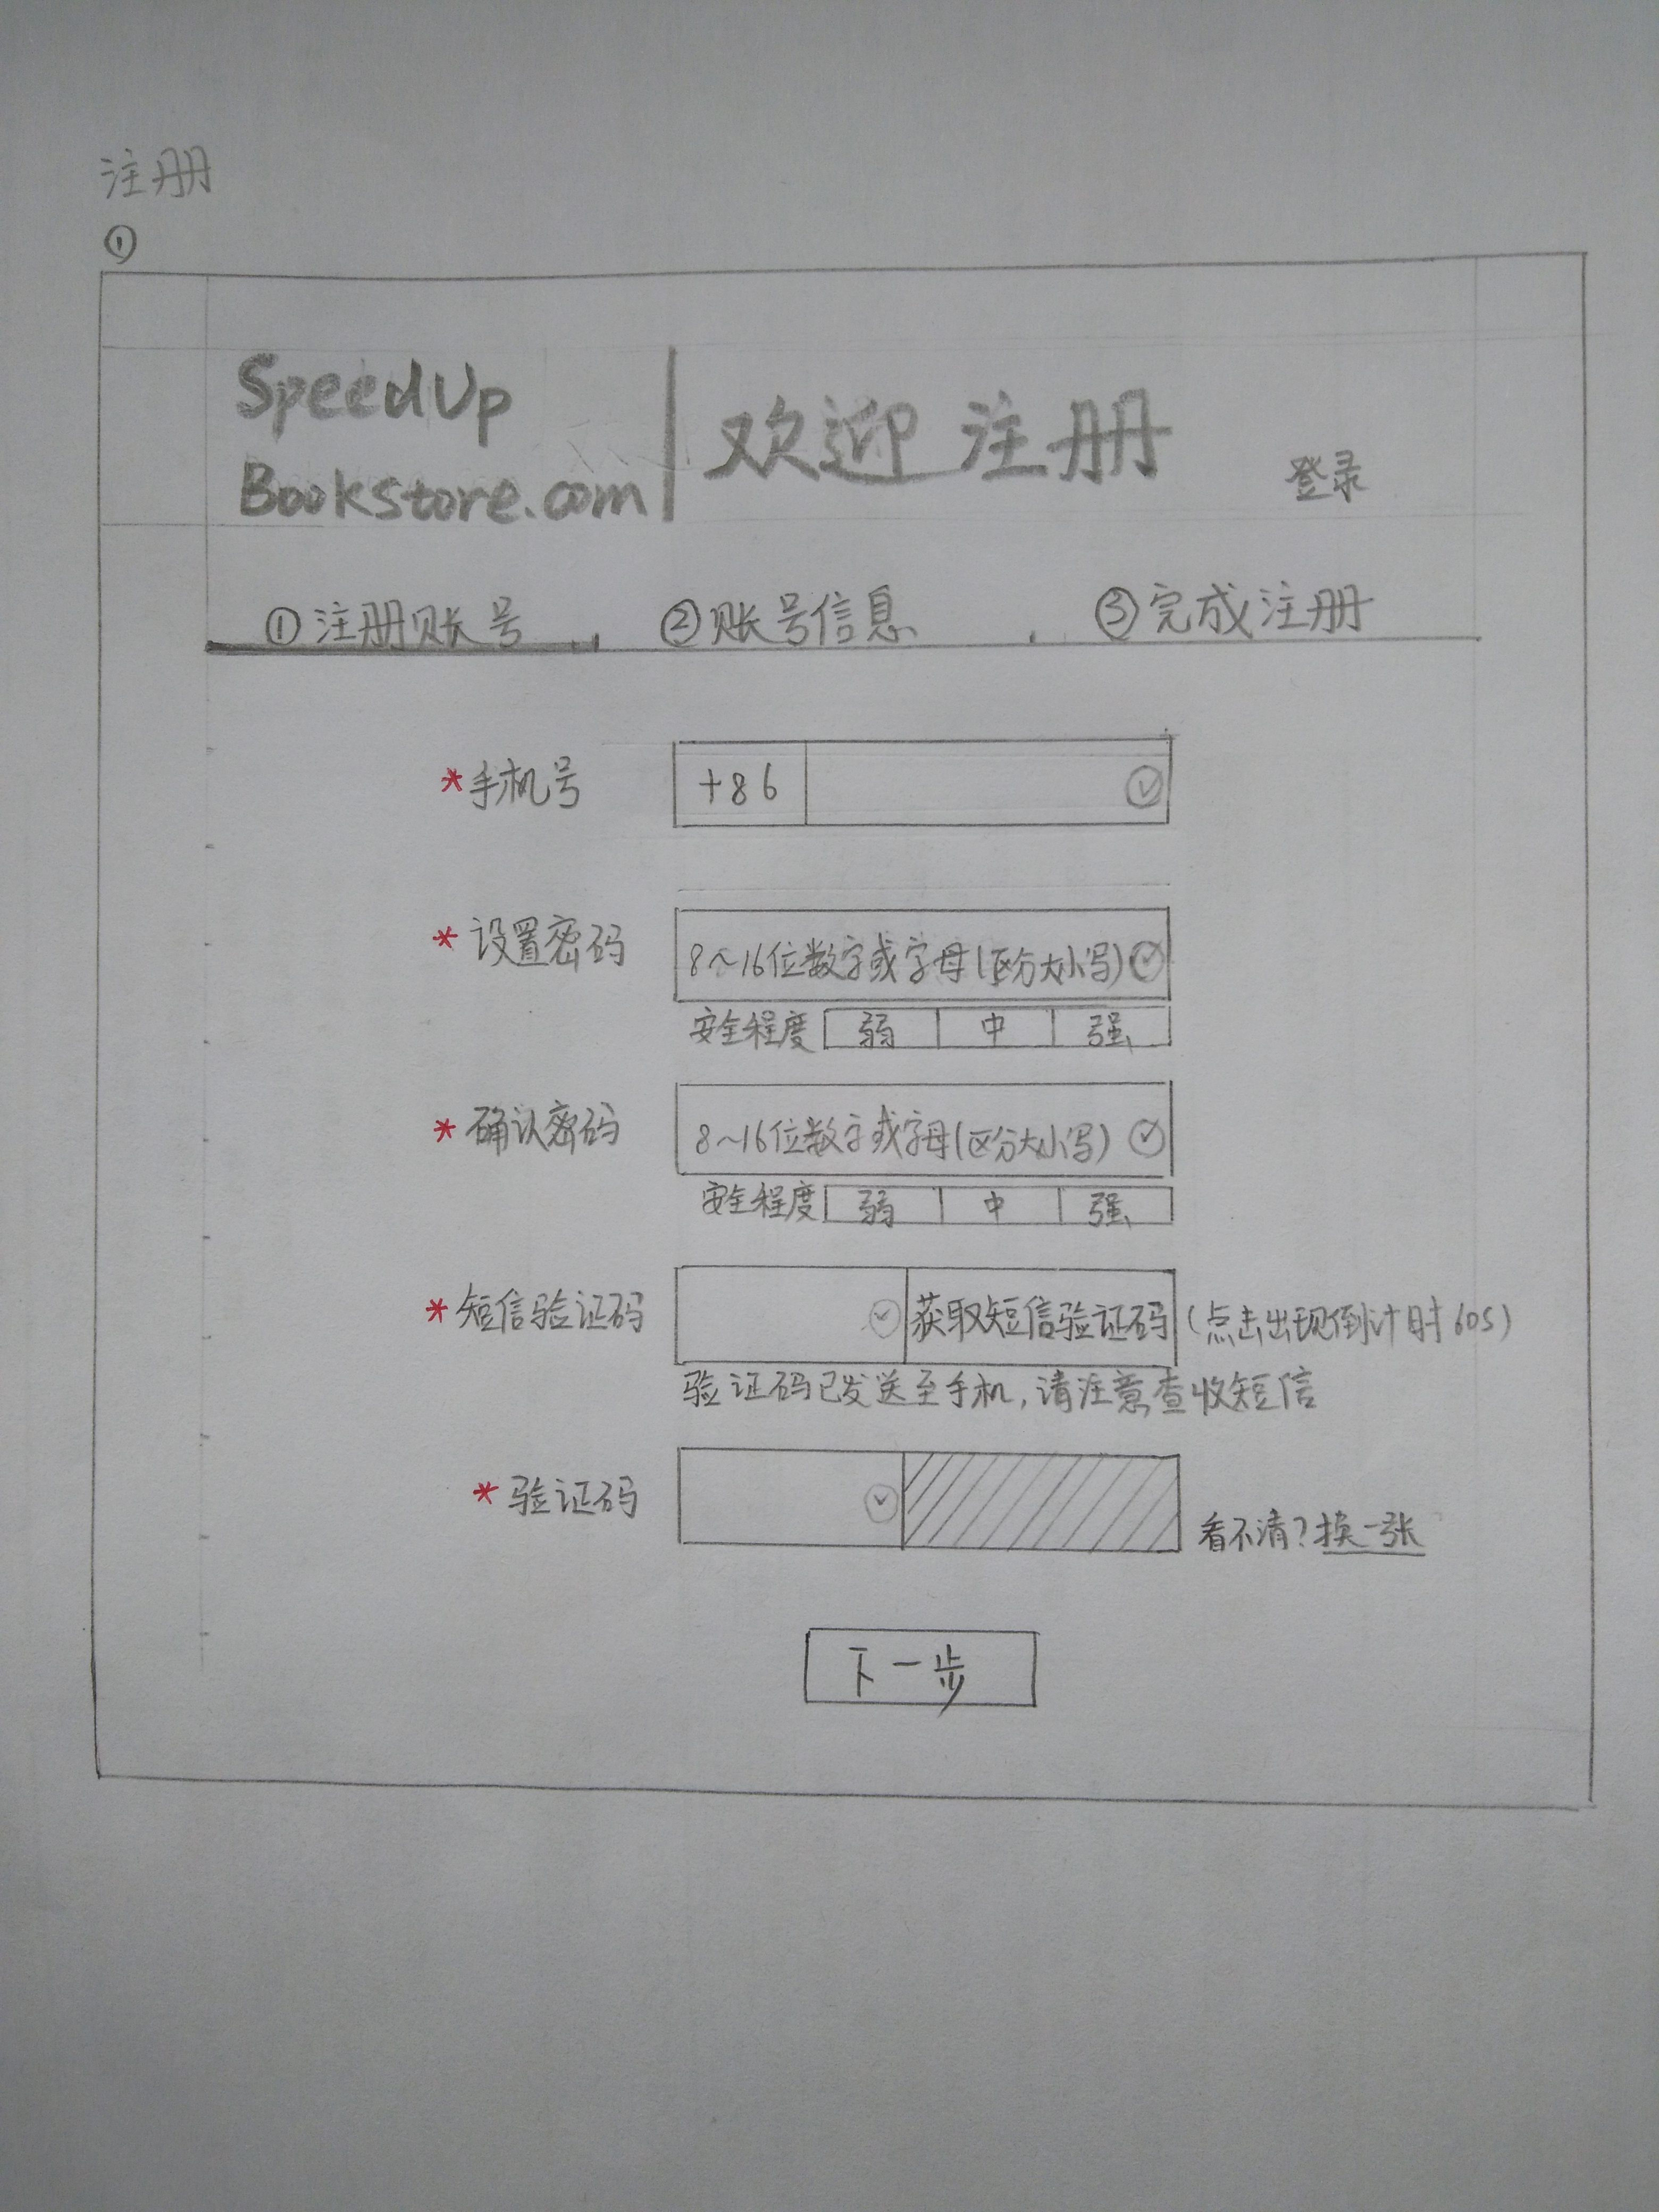 注册
①
SpeedUp
Bookstore.com
欢迎注册
登录
①注册账号 ②账号信息 ③完成注册
*手机号 +86
*设置密码 8~16位数字或字母(区分大小写)
安全程度 弱 中 强
*确认密码 8~16位数字或字母(区分大小写)
安全程度 弱 中 强
*短信验证码 获取短信验证码 (点击出现倒计时60S)
验证码已发送至手机,请注意查收短信
*验证码 看不清?换一张
下一步